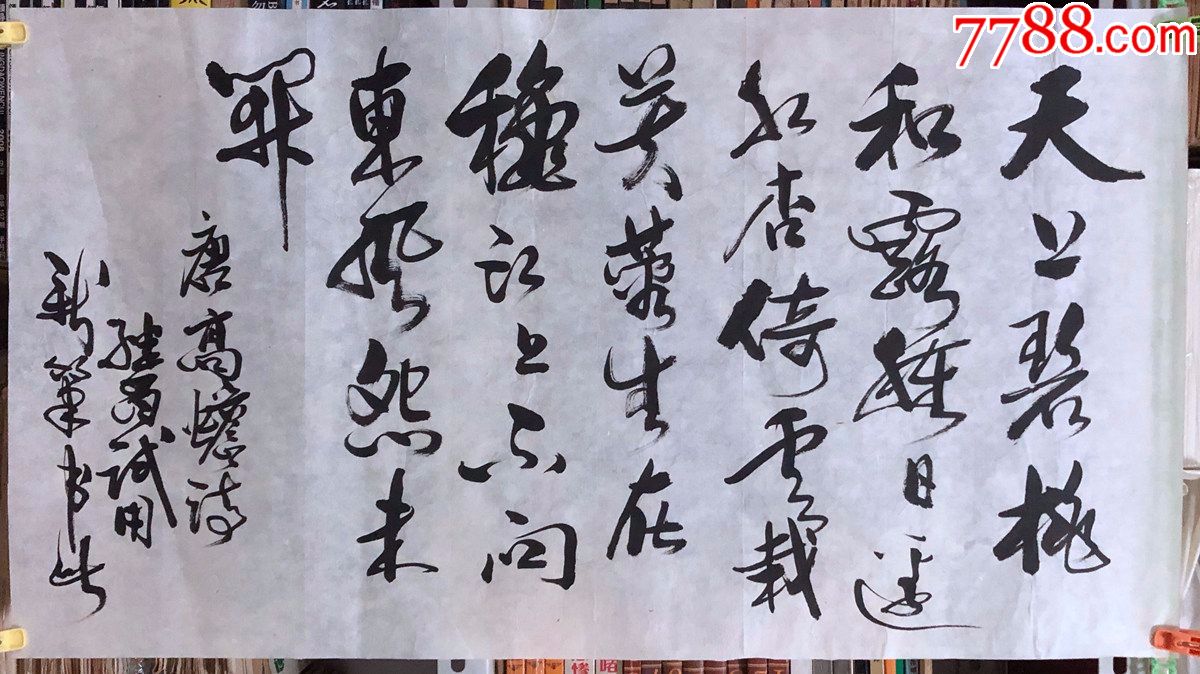 7788.com
天上碧桃
和露種日邊
红杏倚雲栽
芙蓉生在
穐江上不向
東風怨未
開
唐高蟾詩
試用
新筆书此
2008